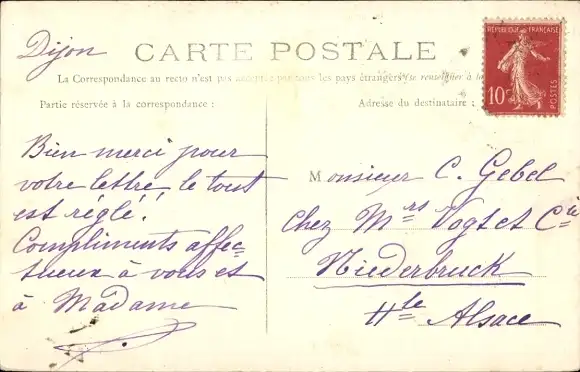 Dijon
CARTE POSTALE
RÉPUBLIQUE FRANÇAISE
10c
POSTES
La Correspondance au recto n'est pas acceptée par tous les pays étrangers (se renseigner à la
Partie réservée à la correspondance :
Adresse du destinataire :
Bien merci pour
votre lettre, le tout
est réglé!
Compliments affec=
tueux à vous et
à Madame
Monsieur C. Gebel
chez Mrs Vogt et Cie
Niederbruck
Hte Alsace